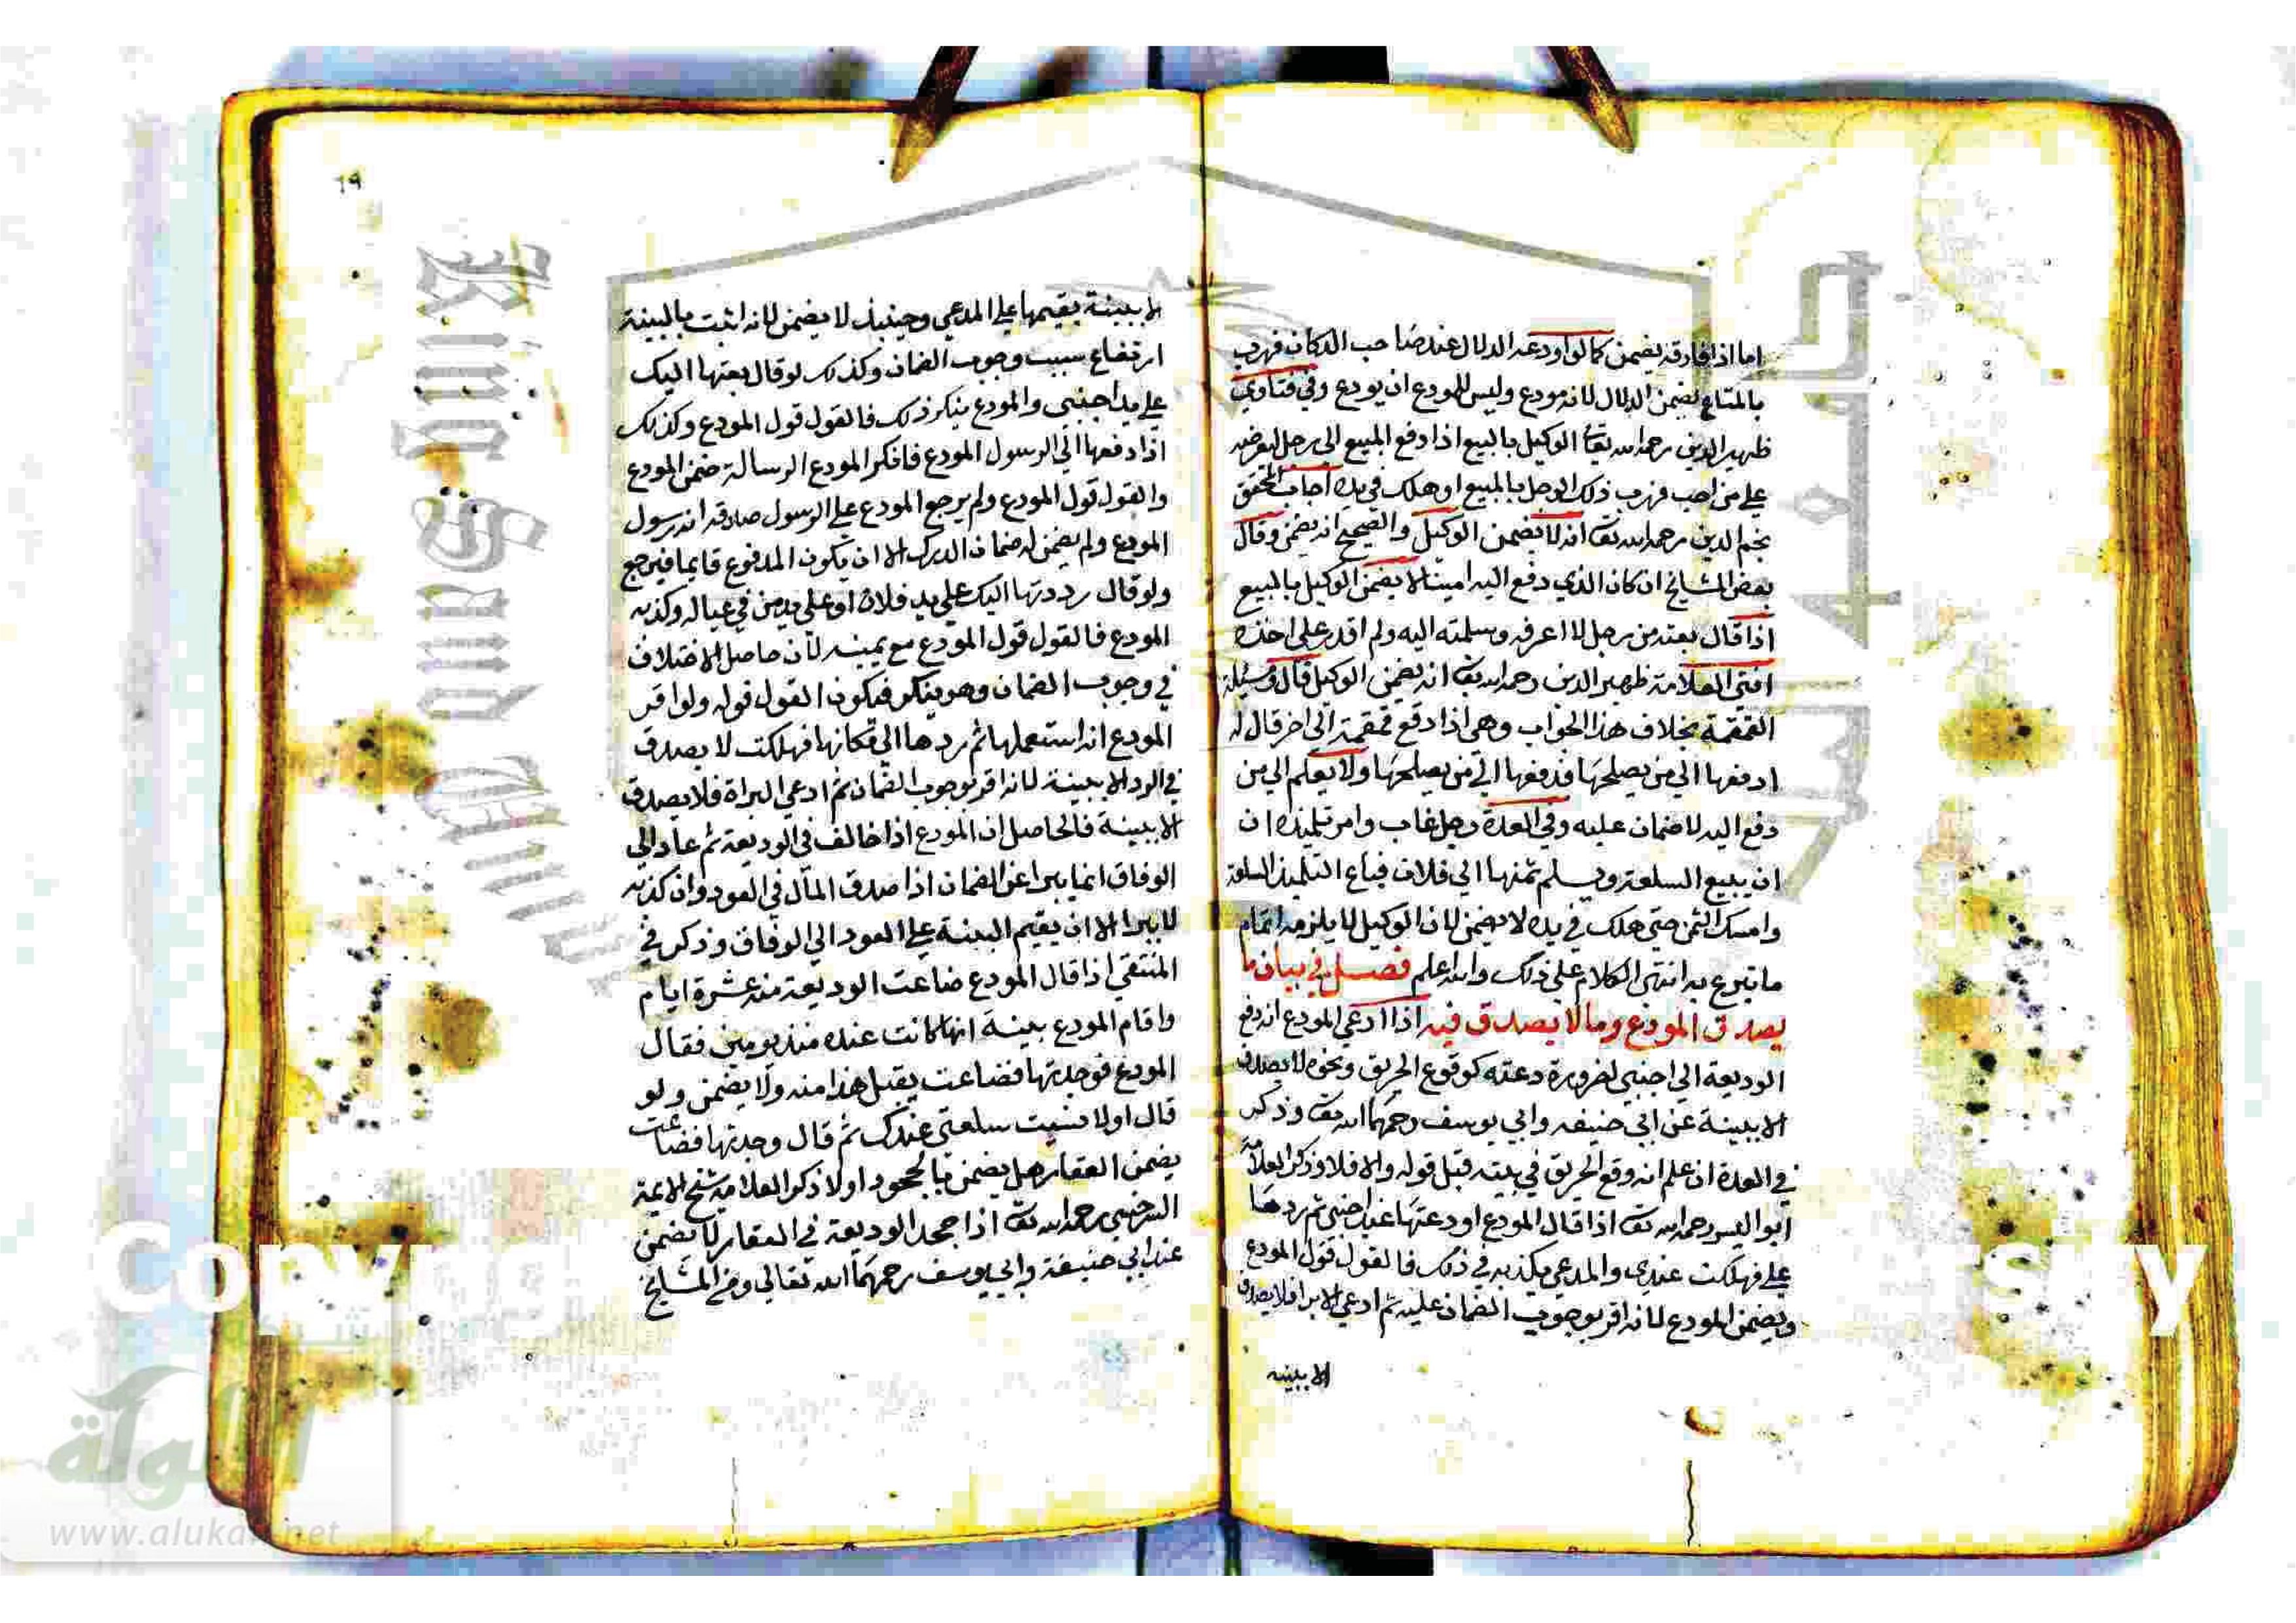 اما اذا فارقه يضمن كما لو اودعه الدلال عند صاحب الدكان فهرب
بالمتاع يضمن الدلال لانه مودع وليس للمودع ان يودع وفي فتاوي
ظهير الدين رحمه الله تعا الوكيل بالبيع اذا دفع المبيع الى رجل ليعرضه
على من احب فهرب ذلك الرجل بالمبيع او هلك في يده اجاب المحقق
نجم الدين رحمه الله تعا انه لا يضمن الوكيل والصحيح انه يضمن وقال
بعض المشايخ ان كان الذي دفع اليه امينا لا يضمن الوكيل بالمبيع
اذا قال بعته من رجل لا اعرفه وسلمته اليه ولم اقدر على اخذه
افتى العلامة ظهير الدين رحمه الله تعا انه يضمن الوكيل قال ومسيلة
القمقمة بخلاف هذا الجواب وهي اذا دفع قمقمة الى اخر قال له
ادفعها الي من يصلحها فدفعها الي من يصلحها ولا يعلم الي من
دفع اليه لا ضمان عليه وفي العدة رجل غاب وامر تلميذه ان
ان يبيع السلعة ويسلم ثمنها الي فلان فباع التلميذ السلعة
وامسك الثمن حتى هلك في يده لا يضمن لان الوكيل لا يلزمه اتمام
ما تبرع به انتهى الكلام على ذلك والله اعلم فصل في بيان ما
يصدق المودع وما لا يصدق فيه اذا ادعي المودع انه دفع
الوديعة الي اجنبي لضرورة دعته كوقوع الحريق ونحوه لا يصدق
الا ببينة عن ابي حنيفه وابي يوسف رحمهما الله تعا وذكر
في العدة ان علم انه وقع الحريق في بيته قبل قوله والا فلا وذكر العلامة
ابو اليسر رحمه الله تعا اذا قال المودع اودعتها عند اجنبي ثم ردها
علي فهلكت عندي والمدعي يكذبه في ذلك فالقول قول المودع
ويضمن المودع لانه اقر بوجوب الضمان عليه ثم ادعي الابرا فلا يصدق
الا ببينه
٦٩
الا ببينة يقيمها علي المدعي وحينيذ لا يضمن لانه اثبت بالبينة
ارتفاع سبب وجوب الضمان وكذلك لو قال بعثتها اليك
علي يد اجنبي والمودع ينكر ذلك فالقول قول المودع وكذلك
اذا دفعها الي الرسول المودع فانكر المودع الرسالة ضمن المودع
والقول قول المودع ولم يرجع المودع علي الرسول صدقه انه رسول
المودع ولم يضمن له ضمان الدرك الا ان يكون المدفوع قايما فيرجع
ولو قال رددتها اليك علي يد فلان او على يد من في عياله وكذبه
المودع فالقول قول المودع مع يمينه لان حاصل الاختلاف
في وجوب الضمان وهو ينكر فيكون القول قوله ولو اقر
المودع انه استعملها ثم ردها الي مكانها فهلكت لا يصدق
في الرد الا ببينة لانه اقر بوجوب الضمان ثم ادعي البراة فلا يصدق
الا ببينة فالحاصل ان المودع اذا خالف في الوديعة ثم عاد الي
الوفاق انما يبرا عن الضمان اذا صدق المال في العود وان كذبه
لا يبرا الا ان يقيم البينة علي العود الي الوفاق وذكر في
المنتقي اذا قال المودع ضاعت الوديعة منذ عشرة ايام
واقام المودع بينة انها كانت عنده منذ يومين فقال
المودع فوجدتها فضاعت يقبل هذا منه ولا يضمن ولو
قال اولا نسيت سلعتي عندك ثم قال وجدتها فضاعت
يضمن العقار هل يضمن بالجحود اولا ذكر العلامة شمس الايمة
السرخسي رحمه الله تعا اذا جحد الوديعة في العقار لا يضمن
عند ابي حنيفة وابي يوسف رحمهما الله تعالي ومن المشايخ
الألوكة
www.alukah.net